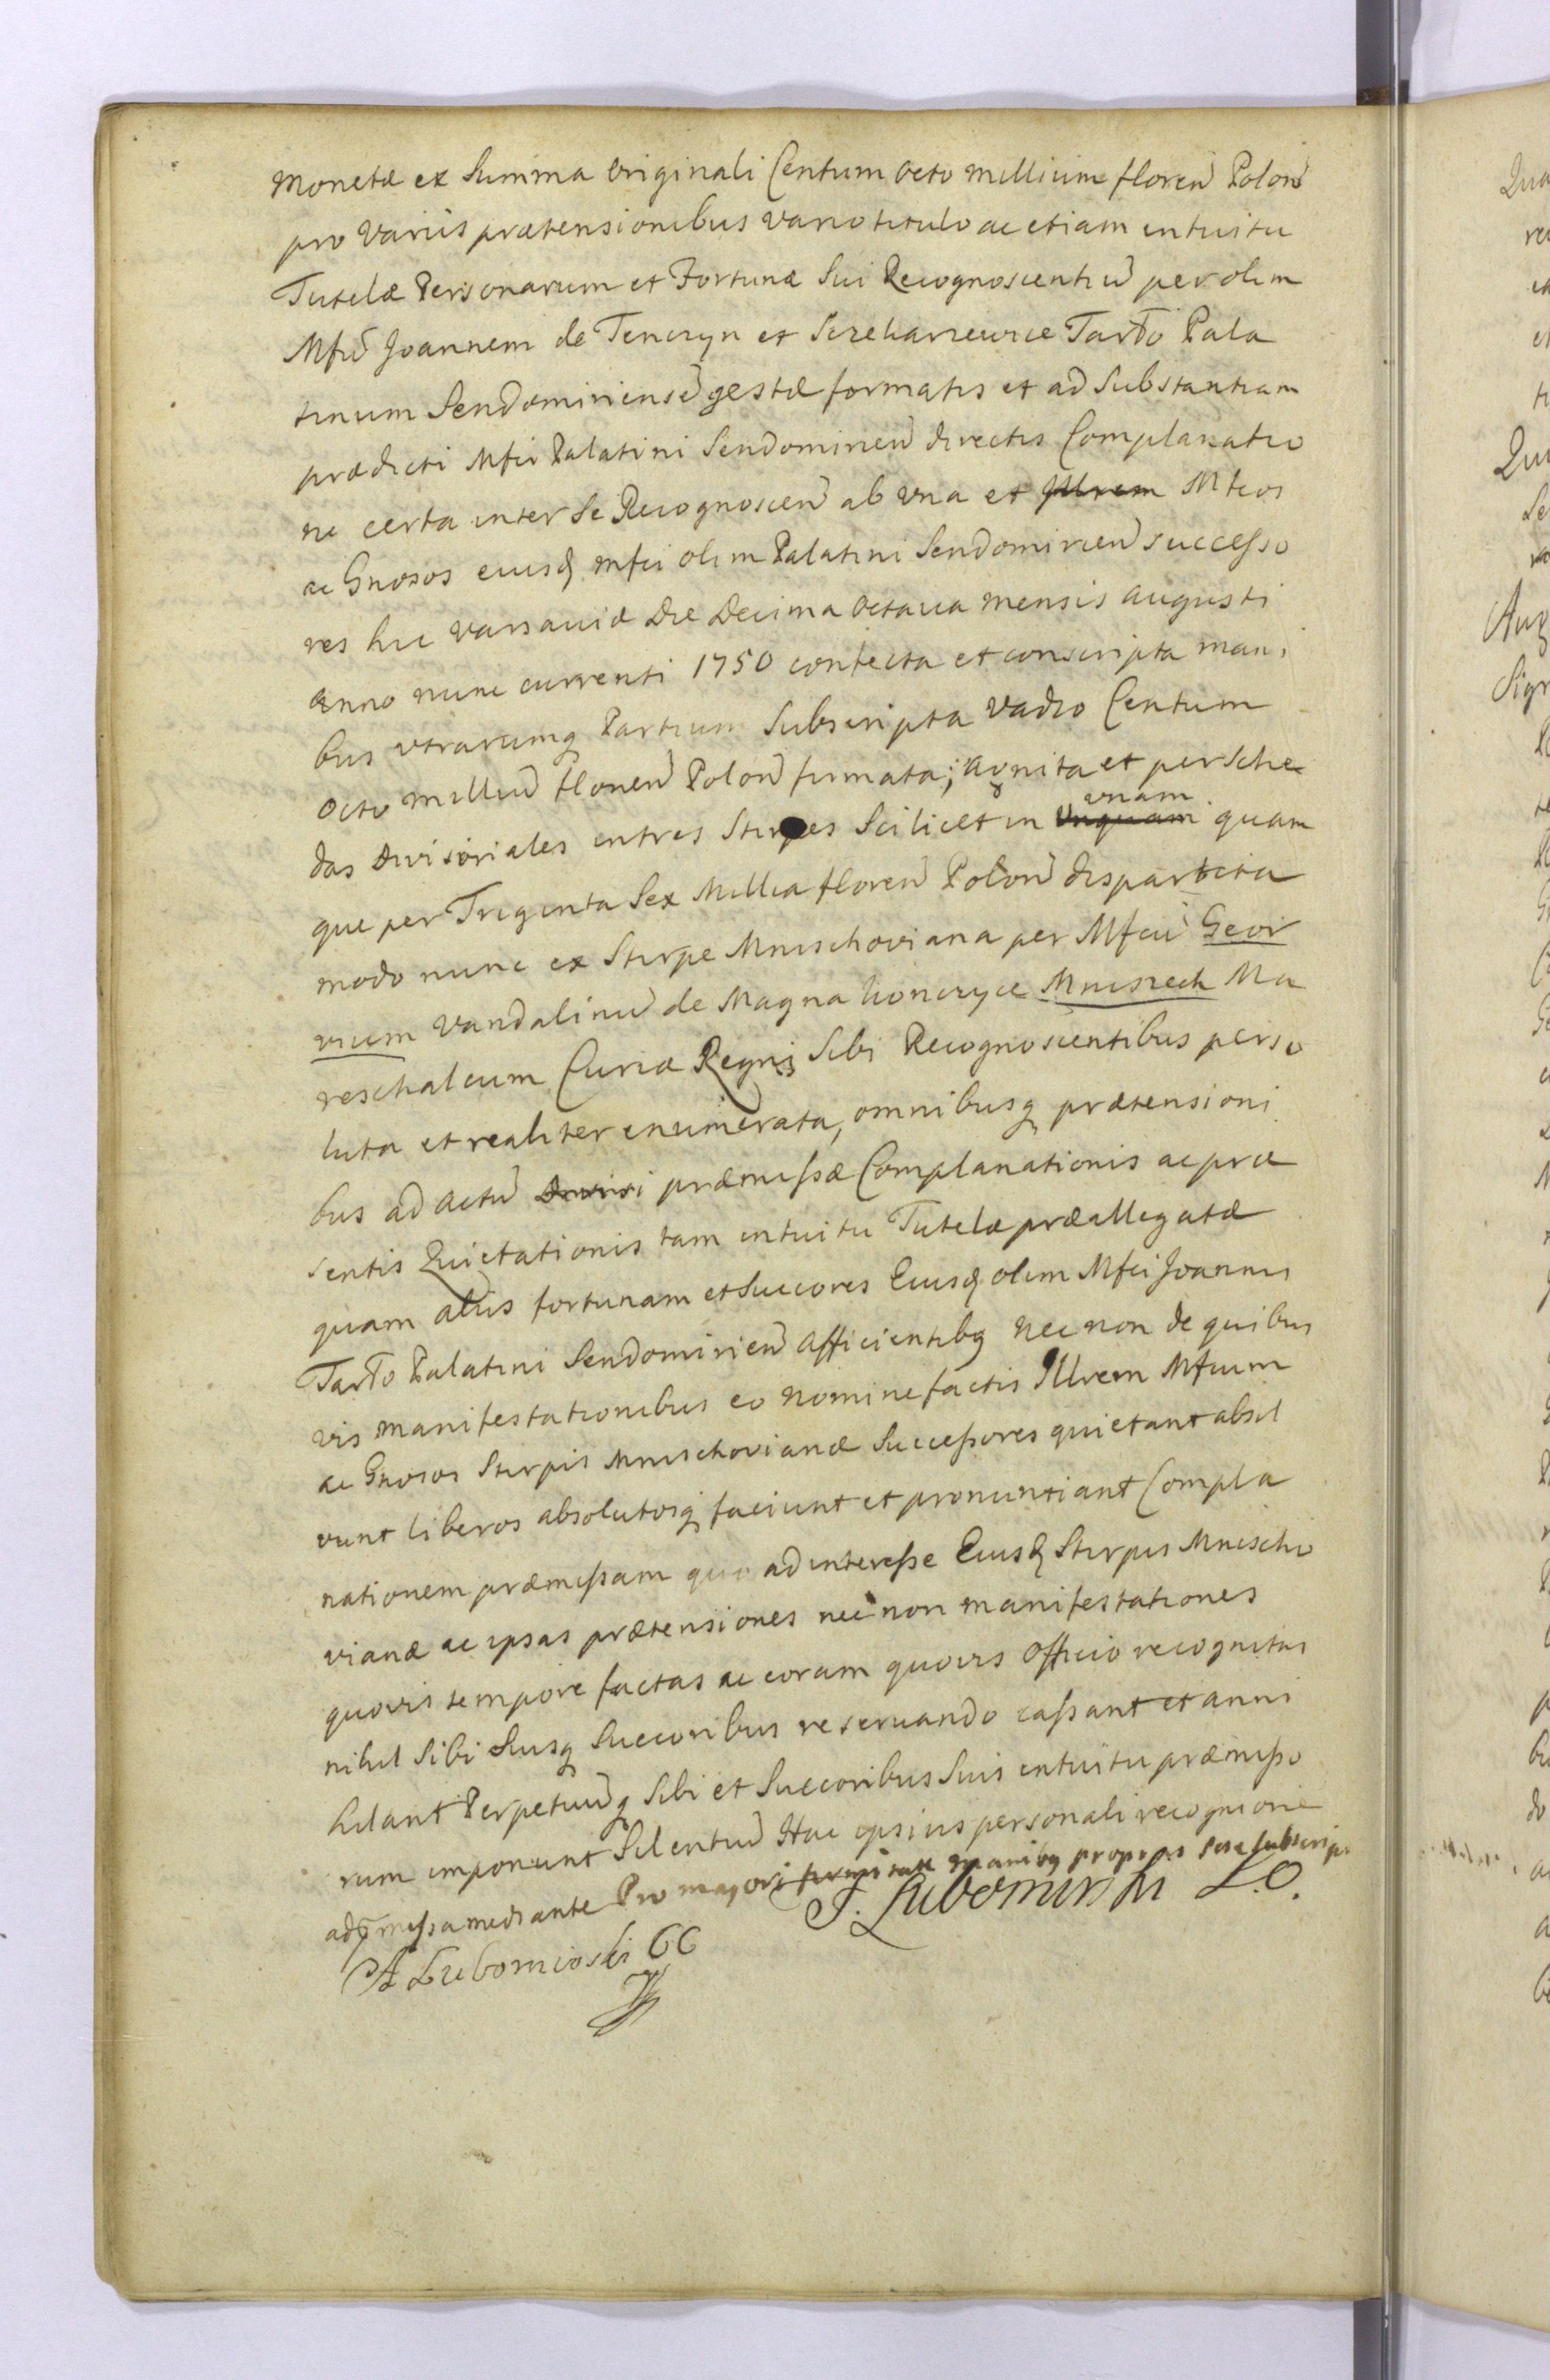 Monetæ ex Summa Originali Centum Octo millium floren Polon
pro Variis prætensionibus vario titulo ac etiam intuitu
Tutelæ Personarum et Fortunæ Sui Recognoscentiu per olim
Mfcu Joannem de Tenczyn et Szekarzewice Tarło Pala
tinum Sendomiriense gestæ formatis et ad Substantiam
prædicti Mfci Palatini Sendomirien directis Complanatio
ne certa inter Se Recognoscen ab una et Illrem Mfcos
ac Gnosos eiusq mfci olim Palatini Sendomirien successo
res hic Varsaviæ Die Decima Octava mensis Augusti
Anno nunc currenti 1750 confecta et conscripta mani
bus utrarumq Partium Subscripta Vadio Centum
Octo milliu floren Polon firmata; agnita et per Sche
das Divisoriales in tres Stirpes Scilicet in unquam unam quam
que per Triginta Sex Millia floren Polon dispartita
modo nunc ex Stirpe Mnischoviana per Mfcu Geor
gium Vandalinu de Magna Konczyce Mniszech Ma
reschalcum Curiæ Regni Sibi Recognoscentibus perso
luta et realiter enumerata, omnibusq prætensioni
bus ad actu præmissæ Complanationis ac præ
sentis Quietationis tam intuitu Tutelæ præallegatæ
quam aliis fortunam et Succores Eiusq olim Mfci Joannis
Tarło Palatini Sendomirien afficientibq nec non de quibus
vis manifestationibus eo nomine factis Illrem Mfcum
ac Gnosos Stirpis Mnischovianæ Successores quietant absol
vunt liberos absolutosq faciunt et pronuntiant Compla
nationem præmissam quo ad interesse Eiusq Stirpis Mnischo
vianæ ac ipsas prætensiones nec non manifestationes
quovis tempore factas ac coram quovis Officio recognitas
nihil Sibi Suisq Succoribus reservando cassant et anni
hilant Perpetuuq Sibi et Succoribus Suis intuitu præmisso
rum imponunt Silentiu Hac ipsius personali recognione
ad pmissa mediante Pro majori firmitate manibq propriis Sese subscrip
J. Lubomirski L.O.
A Lubomirski CC